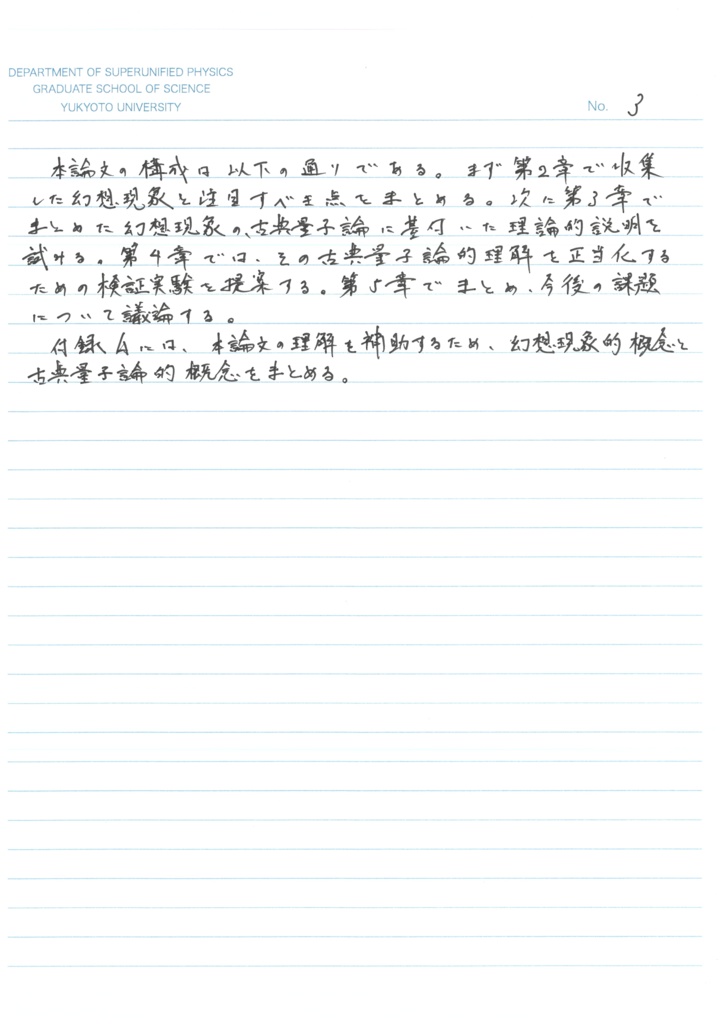 DEPARTMENT OF SUPERUNIFIED PHYSICS
GRADUATE SCHOOL OF SCIENCE
YUKYOTO UNIVERSITY
No. 3
本論文の構成は以下の通りである。まず第2章で収集
した幻想現象と注目すべき点をまとめる。次に第3章で
まとめた幻想現象の、古典量子論に基付いた理論的説明を
試みる。第4章では、その古典量子論的理解を正当化する
ための検証実験を提案する。第5章でまとめ、今後の課題
について議論する。
付録Aには、本論文の理解を補助するため、幻想現象的概念と
古典量子論的概念をまとめる。